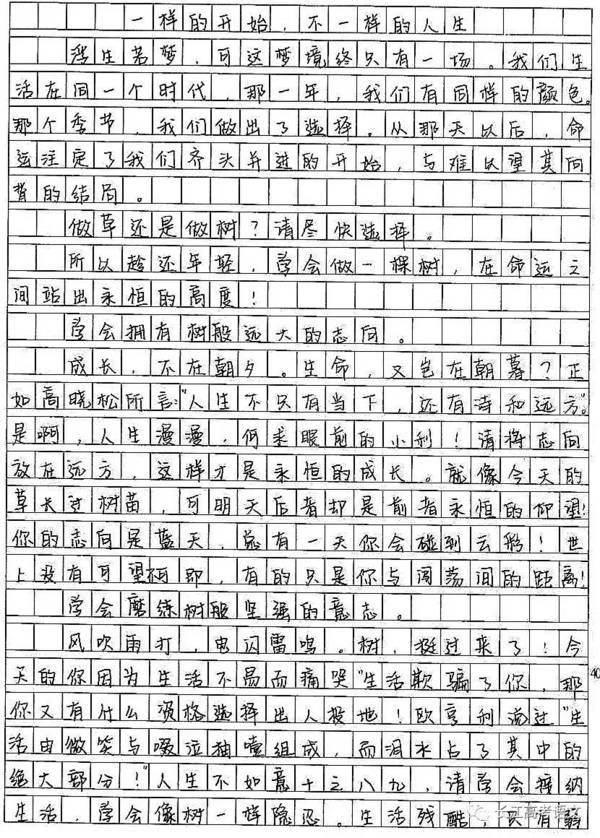 一样的开始，不一样的人生
浮生若梦，可这梦境终只有一场。我们生
活在同一个时代，那一年，我们有同样的颜色。
那个季节，我们做出了选择。从那天以后，命
运注定了我们齐头并进的开始，与难以望其向
背的结局。
做草还是做树？请尽快选择。
所以趁还年轻，学会做一棵树，在命运之
间站出永恒的高度！
学会拥有树般远大的志向。
成长，不在朝夕。生命，又岂在朝暮？正
如高晓松所言："人生不只有当下，还有诗和远方"。
是啊，人生漫漫，何求眼前的小利！请将志向
放在远方，这样才是永恒的成长。就像今天的
草长过树苗，可明天后者却是前者永恒的仰望！
你的志向是蓝天，总有一天你会碰到云彩！世
上没有可望不可即，有的只是你与闯荡间的距离！
学会磨练树般坚强的意志。
风吹雨打，电闪雷鸣。树，挺过来了！今
天的你因为生活不易而痛哭"生活欺骗了你，那
你又有什么资格选择出人投地！欧亨利说过"生
活由微笑与啜泣抽噎组成，而泪水占了其中的
绝大部分！"人生不如意十之八九，请学会接纳
生活，学会像树一样隐忍。生活残酷，只有弱
40
长江高考语文